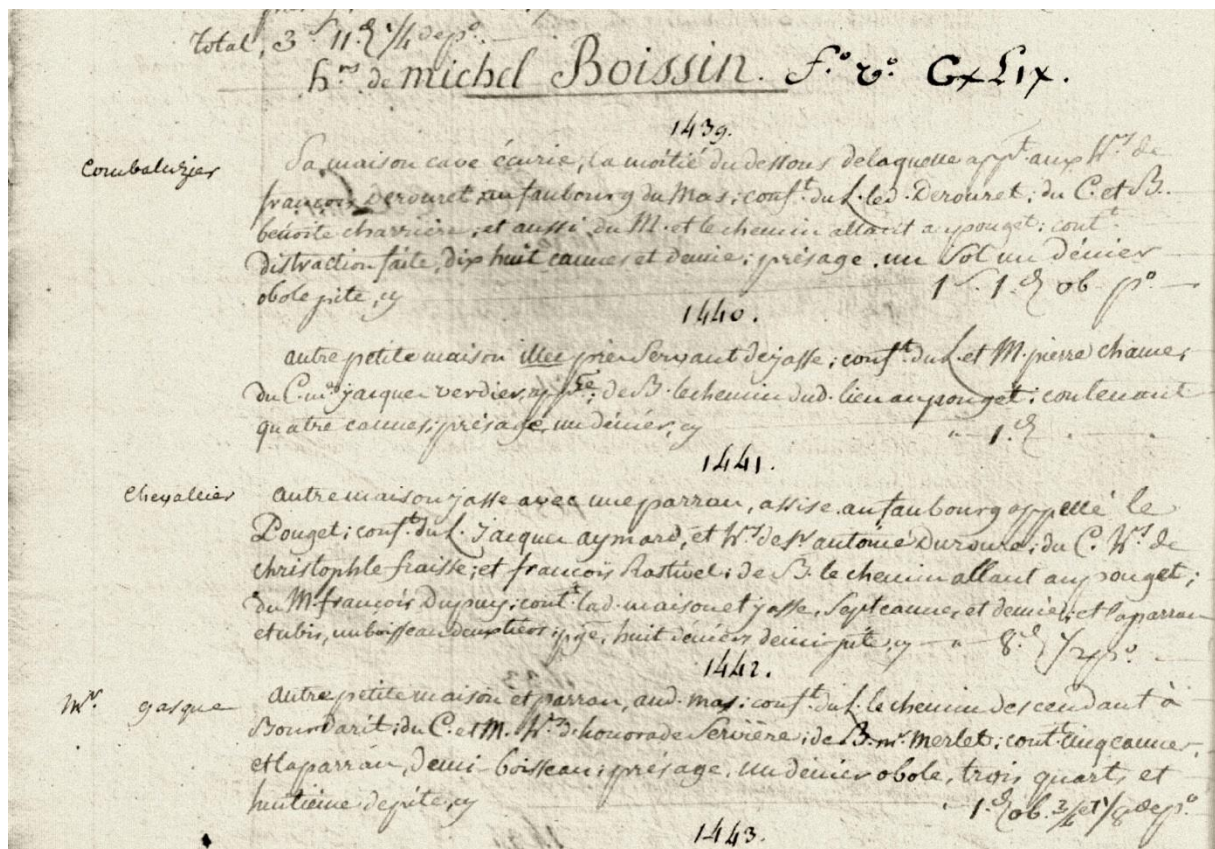 Total, 3 s 11 d 1/4 de po.
hrs. de michel Boissin. f.o v.o CxLix.
1439.
Combaluzier
Sa maison cave écurie, la moitié du dessous delaquelle appt. aux hrs de
françois Derouret, au faubourg du Mas; conft. du L. led. Derouret; du C. et B.
benoite charriere; et aussi du M. et le chemin allant au pouget; cont.
distraction faite, dix huit cannes et demie; présage, un sol un dénier
obole pite, cy 1 s. 1. d ob. po.
1440.
autre petite maison illec près servant de jasse; conft. du L. et M. pierre chames
du C. mre jacques verdier, de B. le chemin dud. lieu au pouget; contenant
quatre cannes, présage, un dénier, cy " 1. d
1441.
Chevallier
autre maison jasse avec une parran, assise au faubourg appellé le
Pouget; conft. du L. Jacques aymard, et hrs de sr antoine Duroure; du C. hrs de
christophle fraisse; et françois Rastivel; de B. le chemin allant au pouget;
du M. françois Dupuy; cont. lad. maison et jasse, sept cannes et demie; et laparran
et ubis, un boisseau deux tiers; pge, huit deniers demi pite, cy " 8. d 1/2 po.
1442.
Mr. gasque
autre petite maison et parran, aud. mas; conft. du L. le chemin descendant à
Bourdarit; du C. et M. hrs d'honorade Servière; de B. mr. Merlet; cont. cinq cannes,
et laparran, demi-boisseau; présage, un dénier obole, trois quarts et
huitième de pite, cy " 1. d ob. 3/4 et 1/8 de po.
1443.